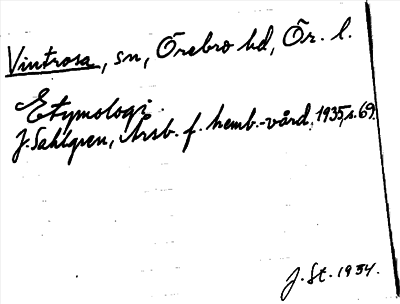 Vintrosa, sn, Örebro hd, Ör. l.
Etymologi.
J. Sahlgren, Årsb. f. hemb.-vård, 1935, s. 69.
J. St. 1934.